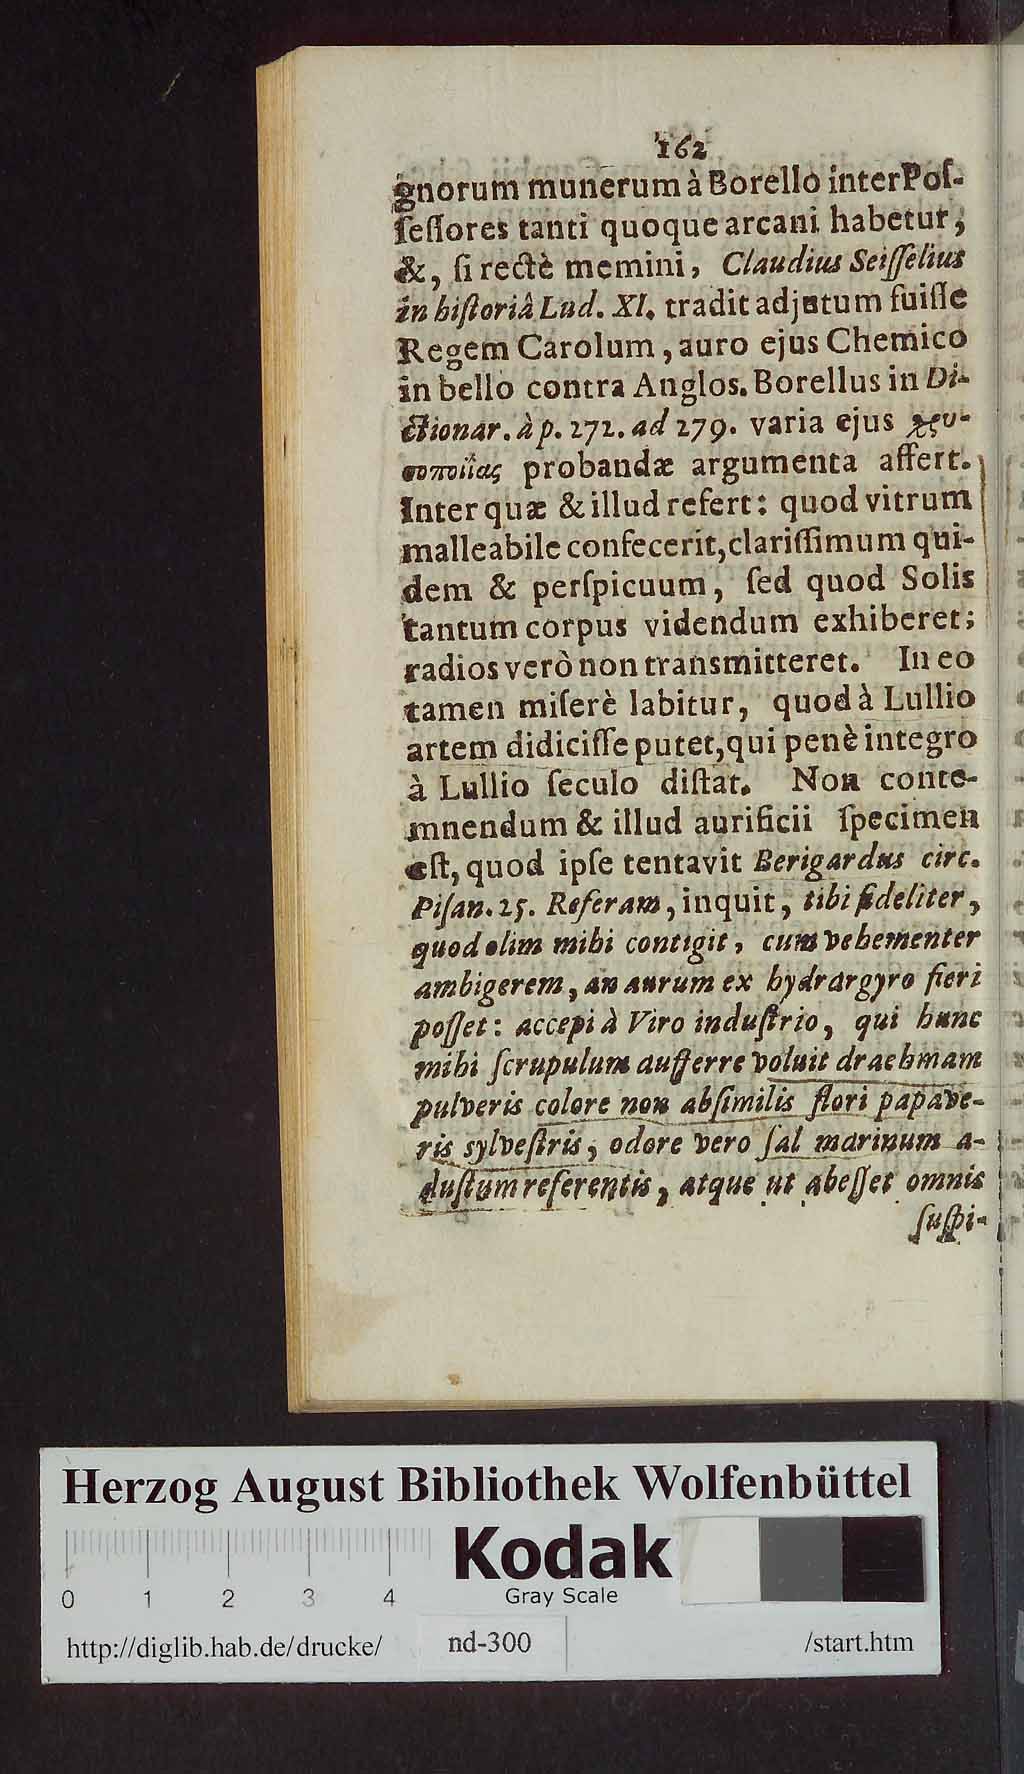 162
gnorum munerum à Borello inter Poſ-
ſeſſores tanti quoque arcani habetur,
&, ſi rectè memini, Claudius Seiſſelius
in hiſtoriâ Lud. XI. tradit adjutum fuiſſe
Regem Carolum, auro ejus Chemico
in bello contra Anglos. Borellus in Di-
ctionar. à p. 272. ad 279. varia ejus χρυ-
σοποιΐας probandæ argumenta affert.
Inter quæ & illud refert: quod vitrum
malleabile confecerit, clariſſimum qui-
dem & perſpicuum, ſed quod Solis
tantum corpus videndum exhiberet;
radios verò non transmitteret. In eo
tamen miſerè labitur, quod à Lullio
artem didiciſſe putet, qui penè integro
à Lullio ſeculo diſtat. Non conte-
mnendum & illud aurificii ſpecimen
eſt, quod ipſe tentavit Berigardus circ.
Piſan. 25. Referam, inquit, tibi fideliter,
quod olim mihi contigit, cum vehementer
ambigerem, an aurum ex hydrargyro fieri
poſſet: accepi à Viro induſtrio, qui hunc
mihi ſcrupulum aufferre voluit drachmam
pulveris colore non abſimilis flori papave-
ris sylveſtris, odore vero ſal marinum a-
duſtum referentis, atque ut abeſſet omnis
ſuſpi-
Herzog August Bibliothek Wolfenbüttel
Kodak
Gray Scale
0 1 2 3 4
http://diglib.hab.de/drucke/ nd-300 /start.htm